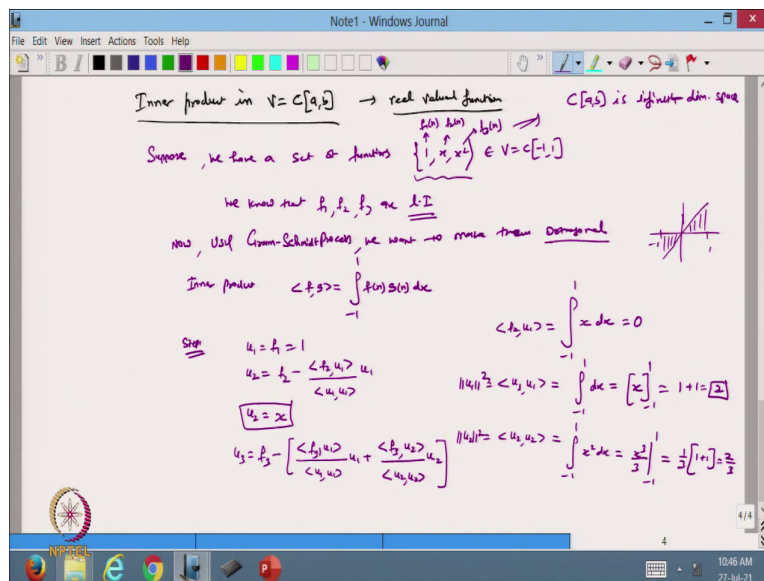 Note1 - Windows Journal
File Edit View Insert Actions Tools Help
B I
Inner product in V = C[a,b] → real valued function
C[a,b] is infinite dim. space
f₁(x) f₂(x) f₃(x)
Suppose, we have a set of functions {1, x, x²} ∈ V = C[-1,1]
We know that f₁, f₂, f₃ are L.I
Now, Using Gram-Schmidt Process, we want to make them orthogonal
-1 1
Inner product <f,g> = ∫₋₁¹ f(x) g(x) dx
<f₂,u₁> = ∫₋₁¹ x dx = 0
Step
u₁ = f₁ = 1
u₂ = f₂ - <f₂,u₁>/<u₁,u₁> u₁
||u₁||² = <u₁,u₁> = ∫₋₁¹ dx = [x]₋₁¹ = 1+1 = 2
u₂ = x
||u₂||² = <u₂,u₂> = ∫₋₁¹ x² dx = x³/3 |₋₁¹ = 1/3 [1+1] = 2/3
u₃ = f₃ - [<f₃,u₁>/<u₁,u₁> u₁ + <f₃,u₂>/<u₂,u₂> u₂]
NPTEL
4/4
4
10:46 AM
27-Jul-21